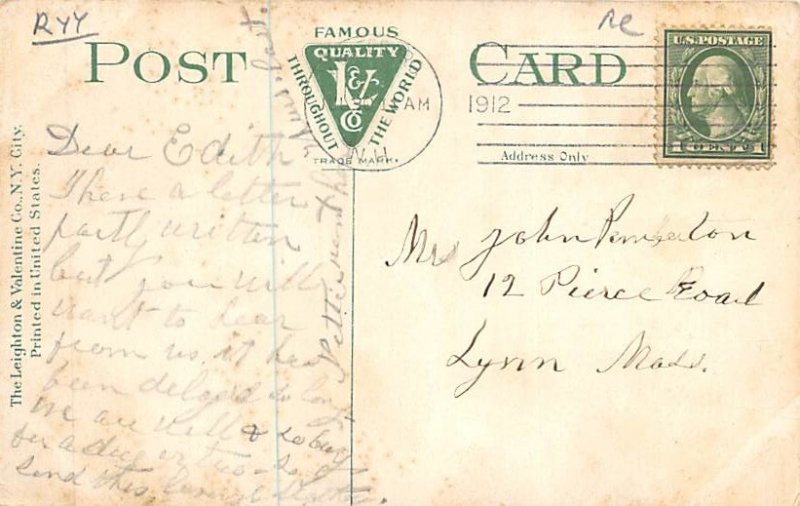 RYY
RC
POST
CARD
FAMOUS
QUALITY
L&V
Co
THROUGHOUT
THE WORLD
TRADE MARK.
AM
1912
N.H.
U.S. POSTAGE
1 CENT 1
Address Only
The Leighton & Valentine Co., N.Y. City.
Printed in United States.
Dear Edith
I have a letter
partly written
but you will
want to hear
from us. it has
been delayed so long
We are well & so busy
for a day or two - So I
send this
Mrs John Pemberton
12 Pierce Road
Lynn Mass.